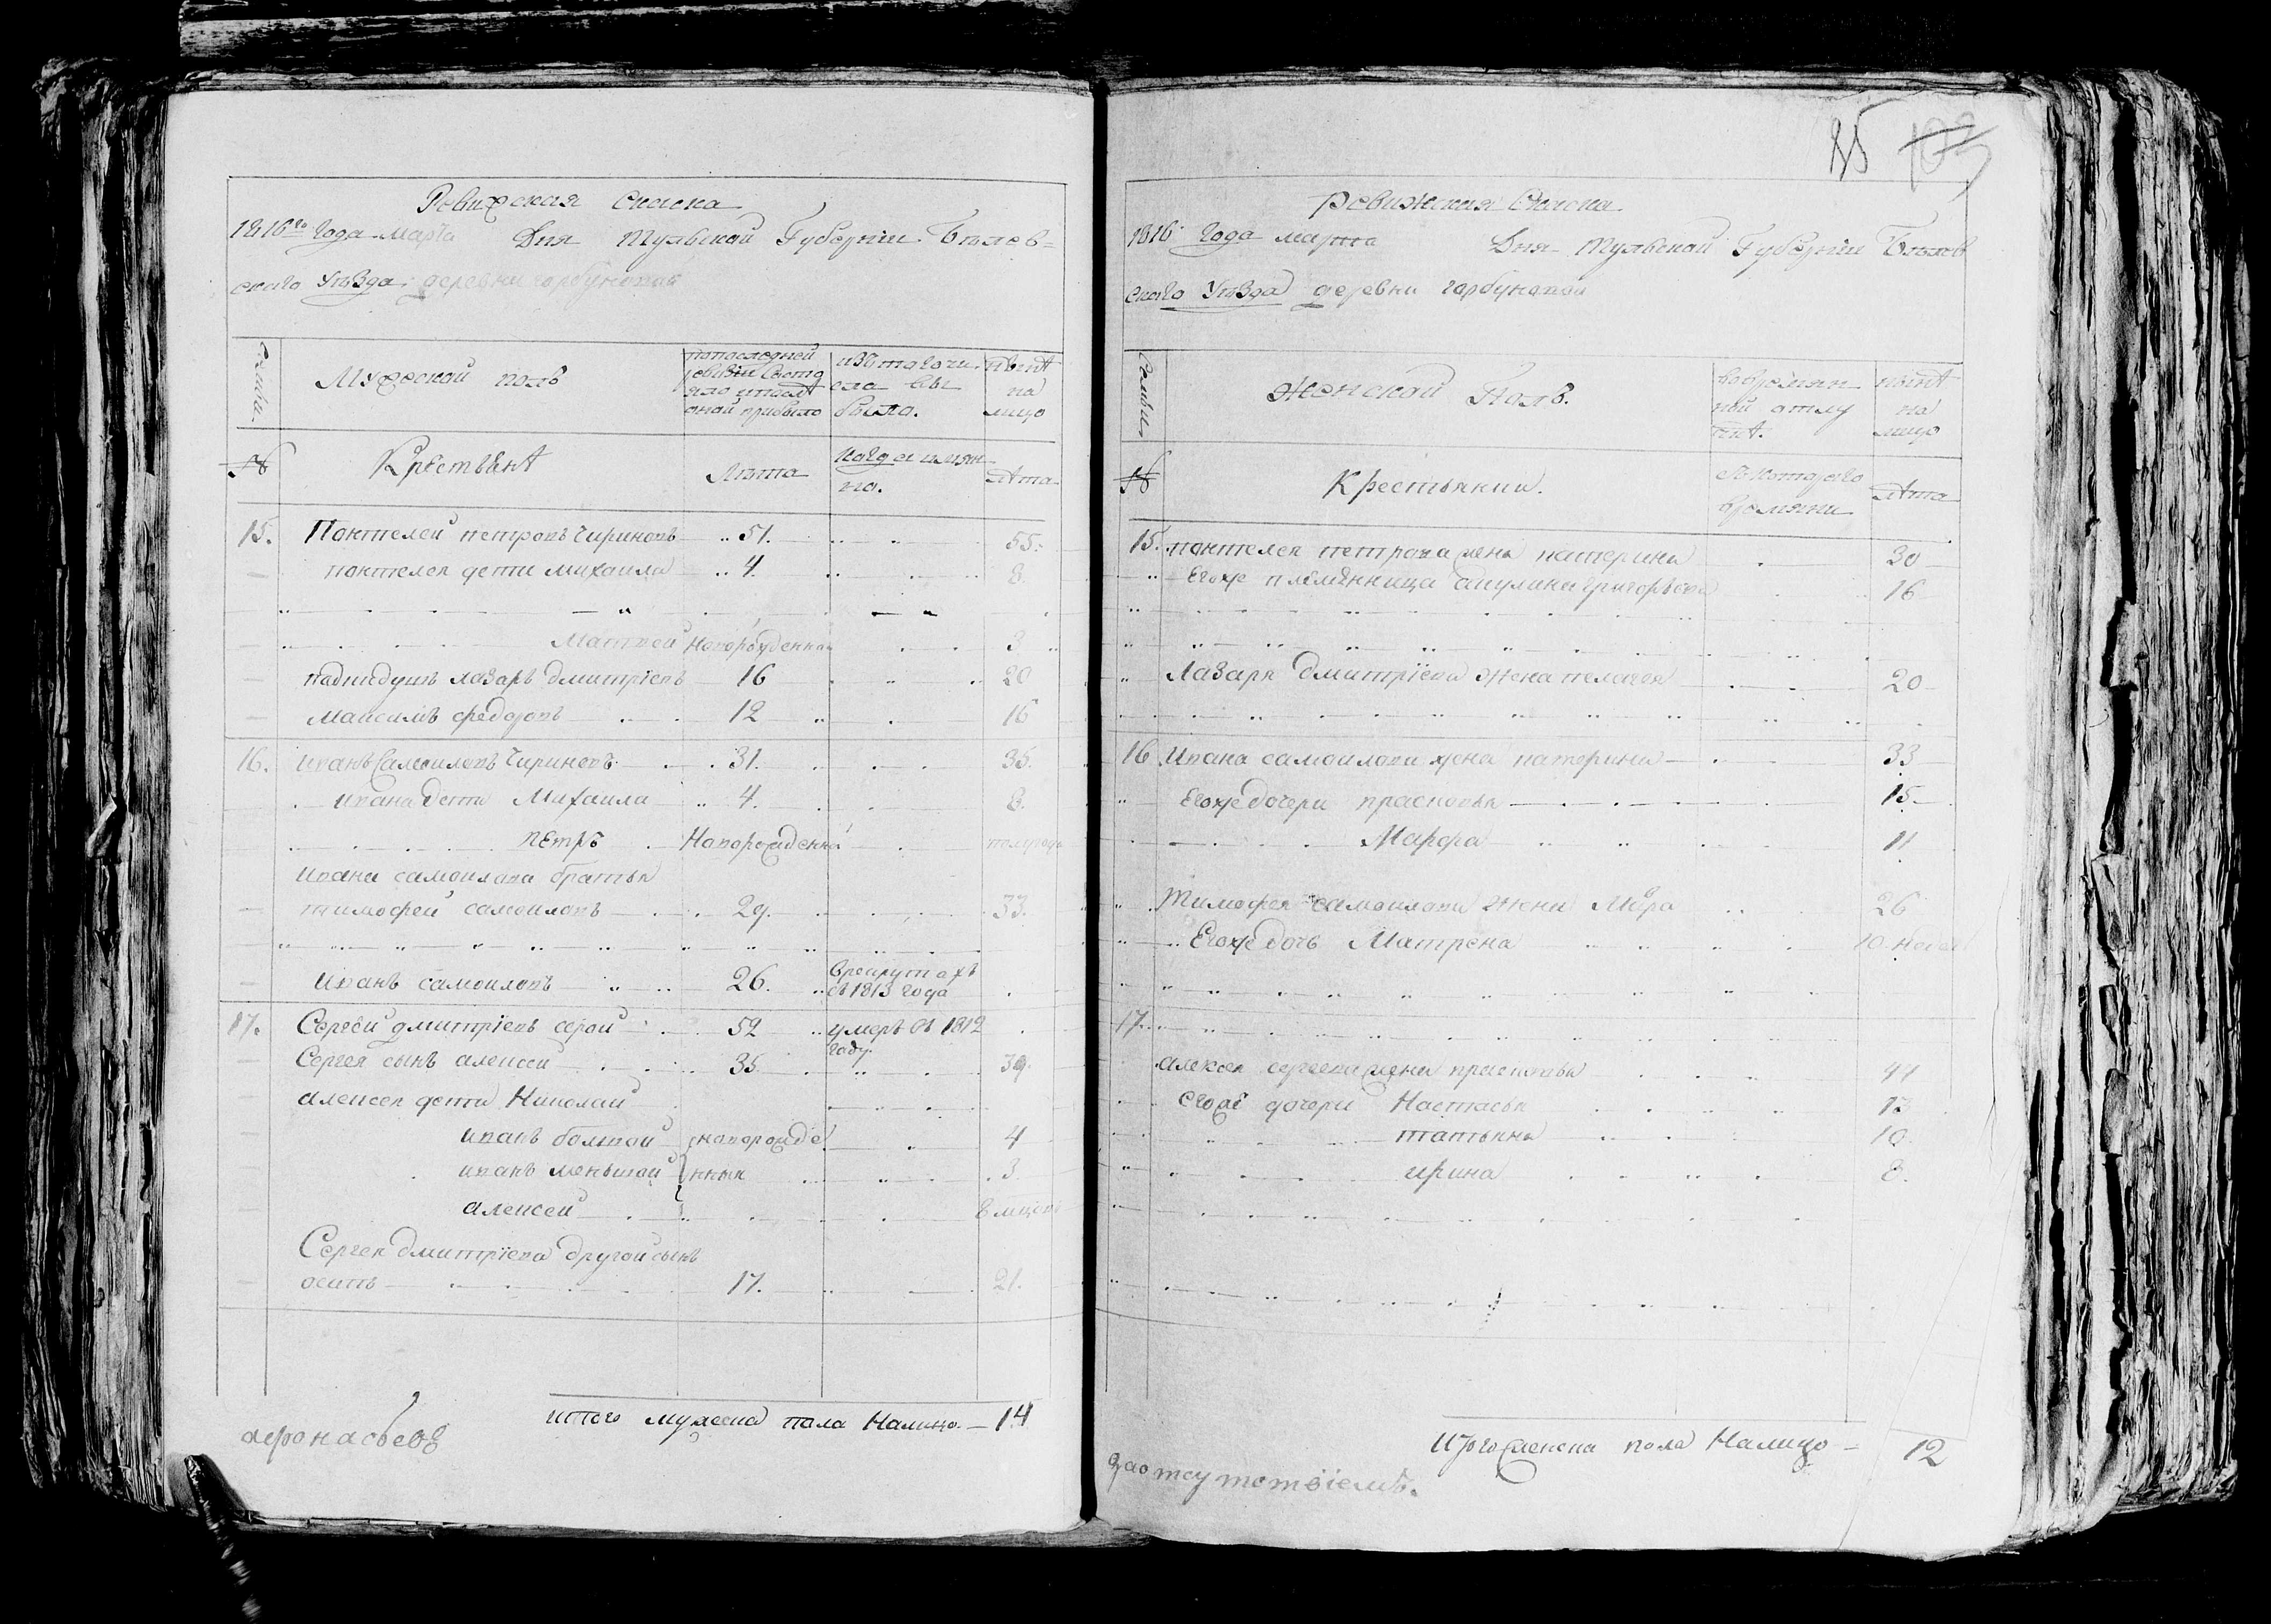 Ревижская Сказка
1816го Года Марта Дня Тульской Губернии Белев=
скаго Уезда деревни горбуновой
Семьи
Мужеской полъ
попоследней
ревизии Состо
яло ипослѣ
оной прибыло
изътогочи
сла вы
было.
ныне
на
лицо
№
Крестьяне
Лѣта
Когда имян
но.
лѣта
15. Пантелей петровъ Чириковъ 51. 55.
пантелея дети михаила 4. 8
Матвей Новорожденной 3
падкидушъ лазаръ дмитрiевъ 16 20
Максимъ федоровъ 12 16
16. иванъ Самоиловъ Чириковъ 31. 35.
ивана дети Михаила 4. 8.
петръ Новорожденной полугода
Ивана самоилова братья
тимофей самоиловъ 29. 33.
иванъ самоиловъ 26. врекрутахъ
съ 1813 года
17. Сергей дмитрiевъ серой 52 умеръ въ 1812
году.
Сергея сынъ алексей 35. 39.
алексея дети Николай
иванъ болшой новорожде 4
иванъ меньшой нныя 3
алексей 8 мцовъ
Сергея дмитрiева другой сынъ
осипъ 17. 21.
итого мужеска пола Налицо 14
афонасьевъ
85 103
Ревижская Сказка
1816 Года марта Дня Тульской Губернии Белев
скаго Уезда деревни горбуновой
Семьи
Женской Полъ.
вовремян
ной отлу
чке.
ныне
на
лицо
№
Крестьянки.
съкотораго
времяни
лѣта
15. пантелея петрова жена катерина 30
Егоже племянница акулина григорьева 16
Лазаря дмитрiева жена пелагея 20
16 Ивана самоилова жена катерина 33
Егоже дочери прасковья 15
Марфа 11
Тимофея самоилова жена 26
Егоже дочь Матрена 10 недел
17.
алексея сергеева жена прасковья 41
Егоже дочери Настасья 13
татьяна 10.
ирина 8.
Итого женска пола Налицо 12
заотсутствiемъ.